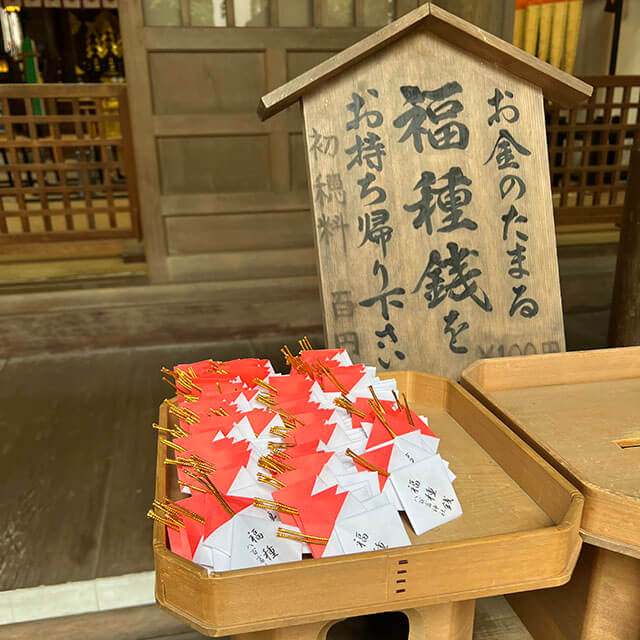 お金のたまる
福種銭を
お持ち帰り下さい
初穂料 百円
¥100円
福種銭
福種
福種